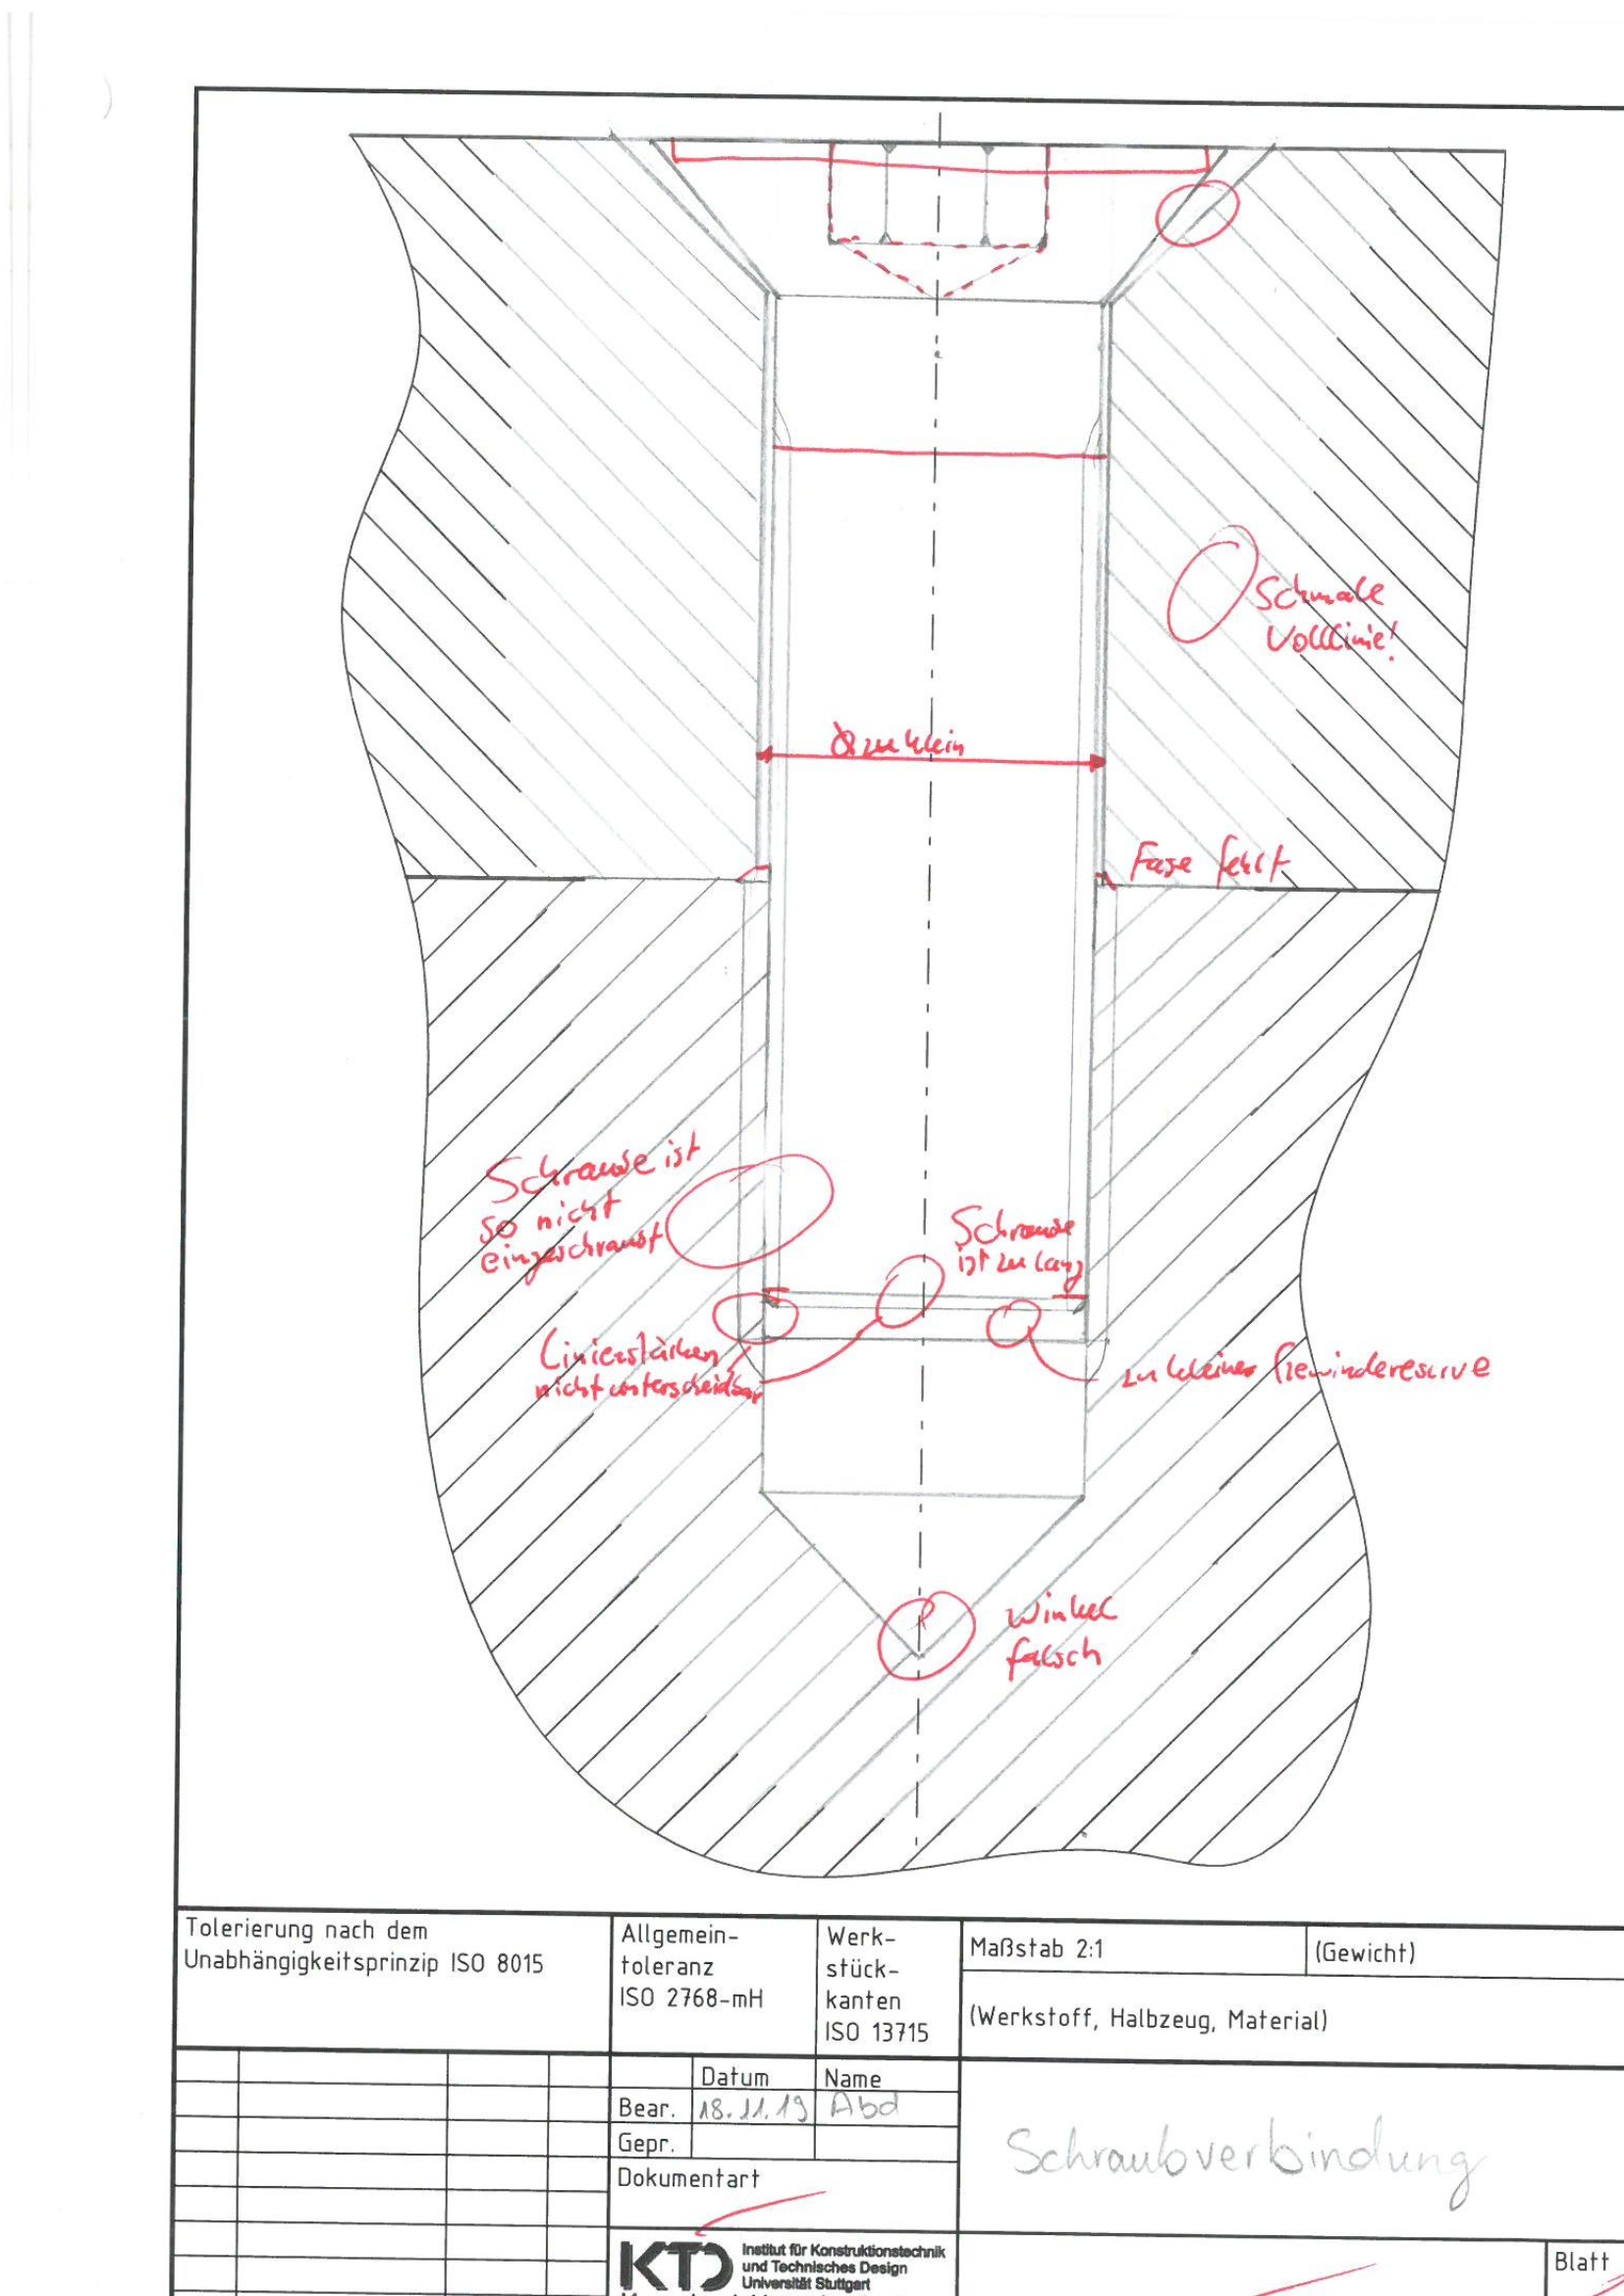 Schmale
Volllinie!
Ø zu klein
Fase fehlt
Schraube ist
so nicht
eingeschraubt
Schraube
ist zu lang
Linienstärken
nicht unterscheidbar
zu kleine Gewindereserve
Winkel
falsch
Tolerierung nach dem
Unabhängigkeitsprinzip ISO 8015
Allgemein-
toleranz
ISO 2768-mH
Werk-
stück-
kanten
ISO 13715
Maßstab 2:1
(Gewicht)
(Werkstoff, Halbzeug, Material)
Datum
Name
Bear.
18.11.19
Abd
Gepr.
Dokumentart
Schraubverbindung
KTD
Institut für Konstruktionstechnik
und Technisches Design
Universität Stuttgart
Blatt